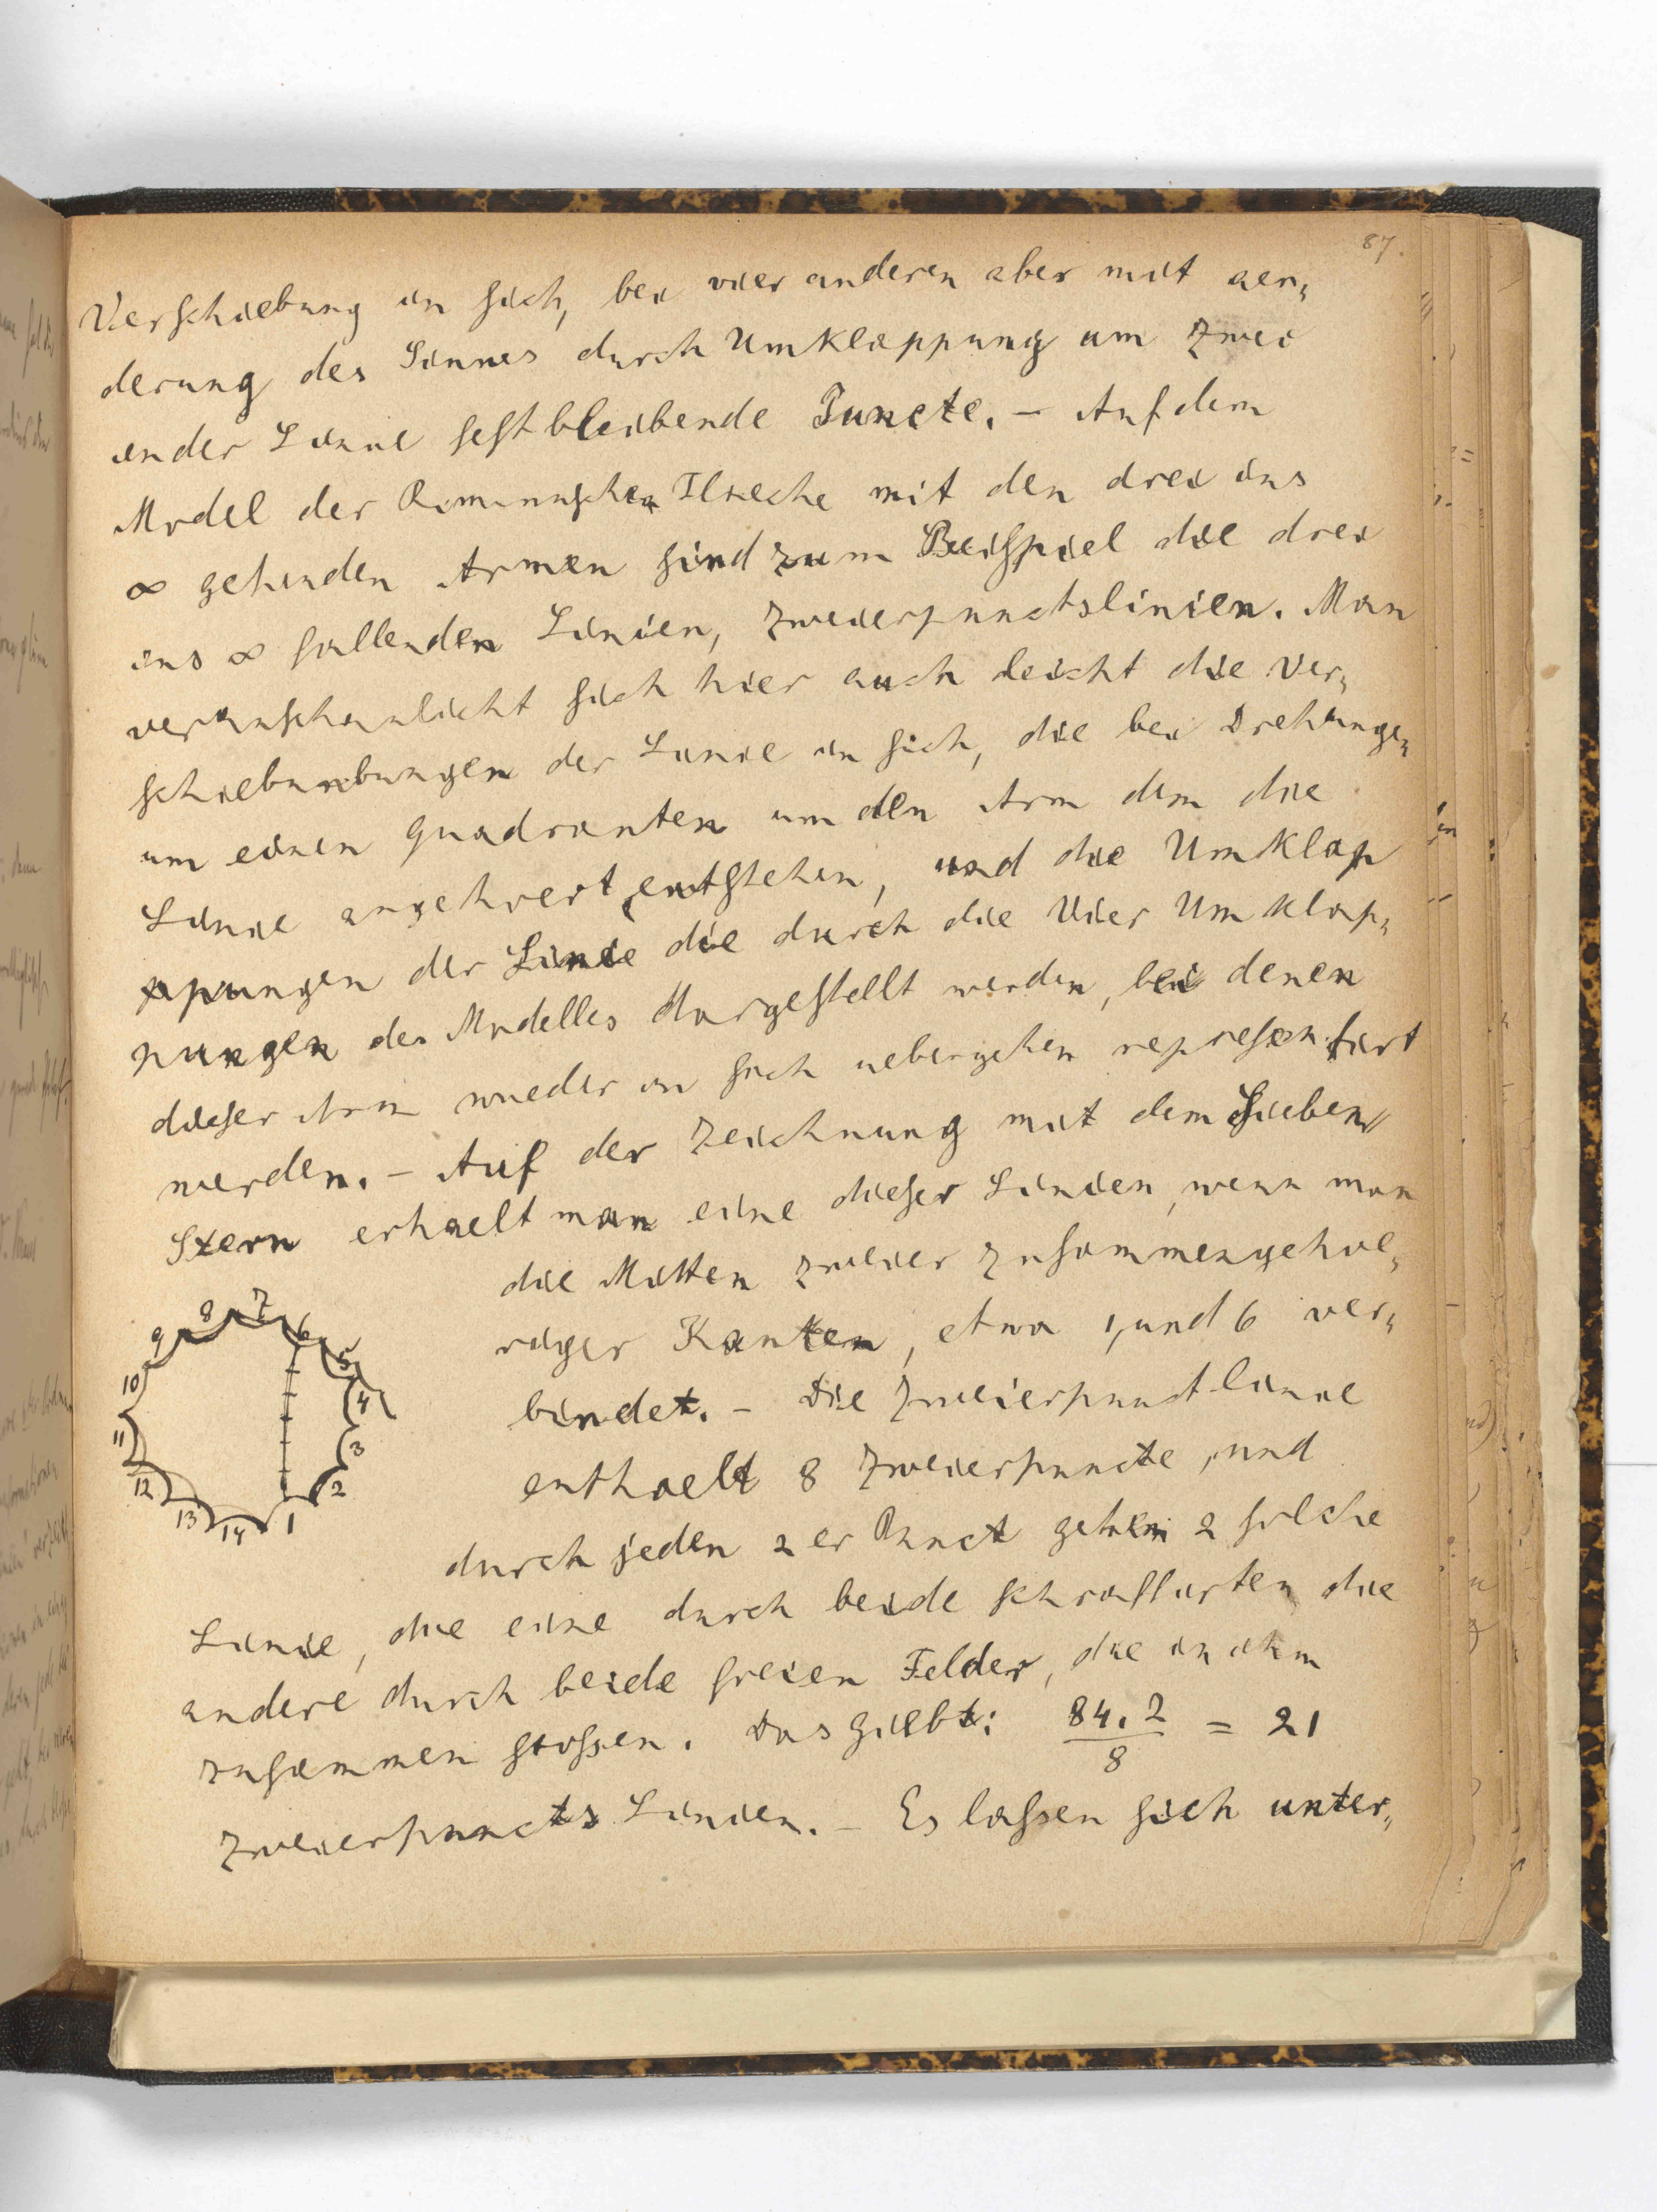 87.
Verschiebung in sich, bei vier anderen aber mit aen„
derung des Sinnes durch Umklappung um zwei
in der Linie festbleibende Puncte. – Auf dem
Model der Rimannschen Flaeche mit den drei ins
∞ gehenden Armen sind zum Beispiel die drei
ins ∞ fallenden Linien, Zweierpunctslinien. Man
veranschaulicht sich hier auch leicht die Ver„
schiebunbungen der Linie in sich, die bei Drehungen
um einen Quadranten um den Arm dem die
Linie angehoert, entstehen, und die Umklap
ppungen der Linie die durch die Vier Umklap„
pungen des Modelles dargestellt werden, bei denen
dieser Arm wieder in sich uebergehen
werden. – Auf der Zeichnung mit dem Sieben„
Stern erhaelt man eine dieser Linien, wenn man
die Mitten zweier zusammengehoe„
riger Kanten, etwa 1, und 6 ver„
bindet. – Die Zweierpunctlinie
enthaelt 8 Zweierpuncte, und
durch jeden 2er Punct gehen 2 solche
Linie, die eine durch beide schraffirten die
andere durch beide freien Felder, die in ihm
zusammen stossen. Das giebt: 84.2/8 = 21
Zweierpuncts Linien. – Es lassen sich unter„
1 2 3 4 5 6 7 8 9 10 11 12 13 14